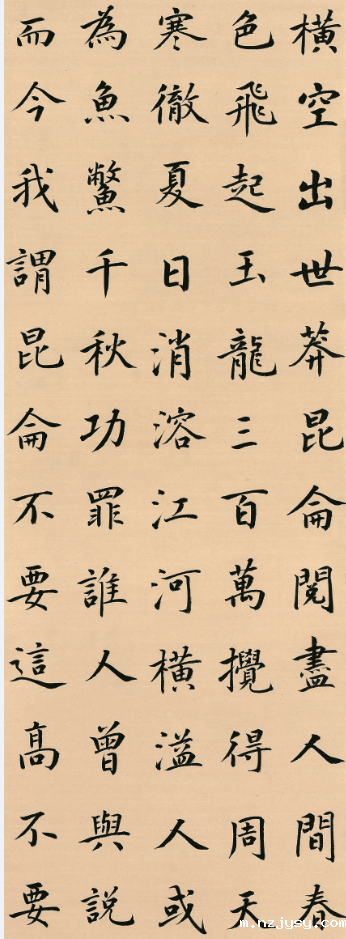 橫空出世莽昆侖閱盡人間春
色飛起玉龍三百萬攪得周天
寒徹夏日消溶江河橫溢人或
為魚鱉千秋功罪誰人曾與説
而今我謂昆侖不要這高不要
m.nzjysy.com